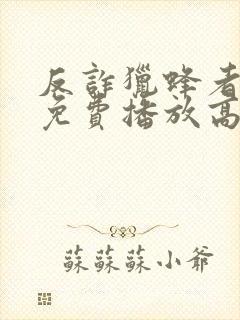 反詐獵蜂者
免費播放高
蘇蘇蘇小爺